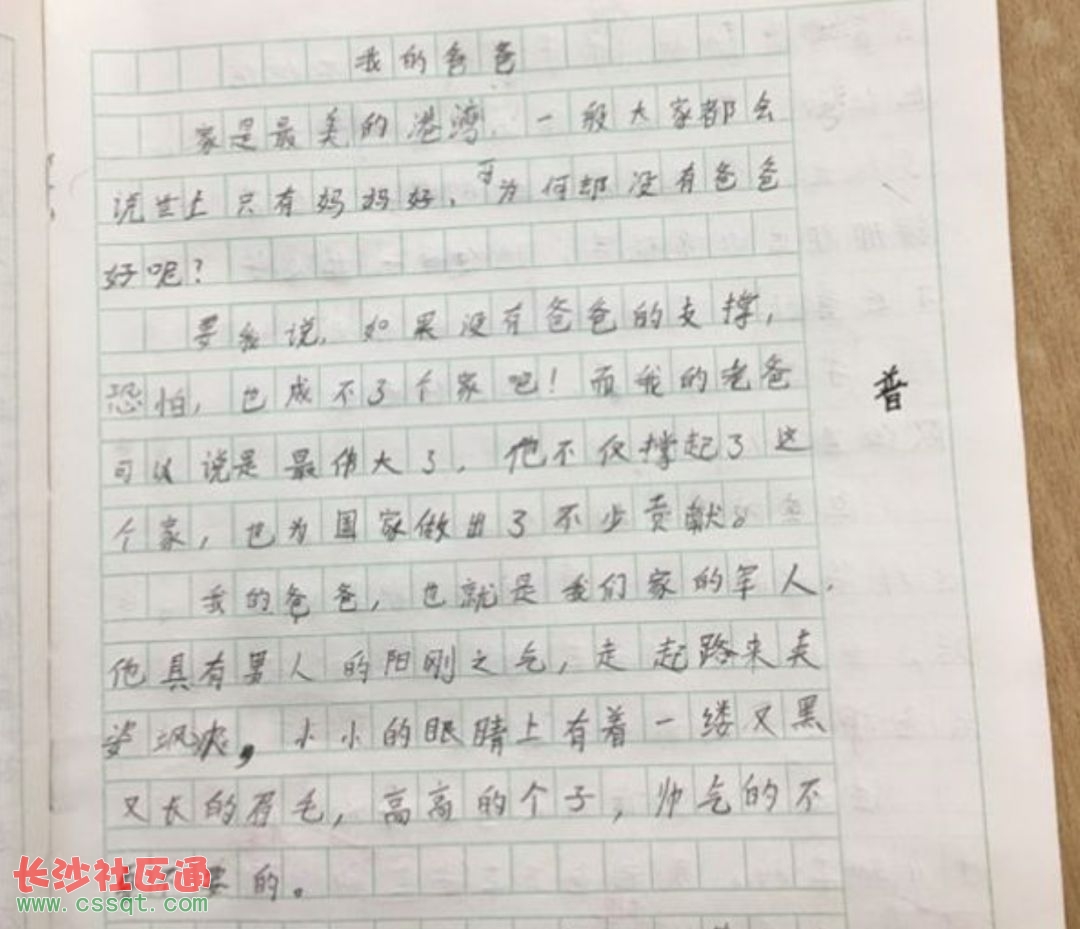 我的爸爸
家是最美的港湾.一般大家都会
说世上只有妈妈好、可为何却没有爸爸
好呢？
要我说，如果没有爸爸的支撑，
恐怕，也成不了个家吧！而我的老爸
可以说是最伟大了，他不仅撑起了这
个家，也为国家做出了不少贡献。
我的爸爸，也就是我们家的军人.
他具有男人的阳刚之气，走起路来英
姿飒爽，小小的眼睛上有着一缕又黑
又长的眉毛，高高的个子，帅气的不
要的。
普
长沙社区通
www.cssqt.com